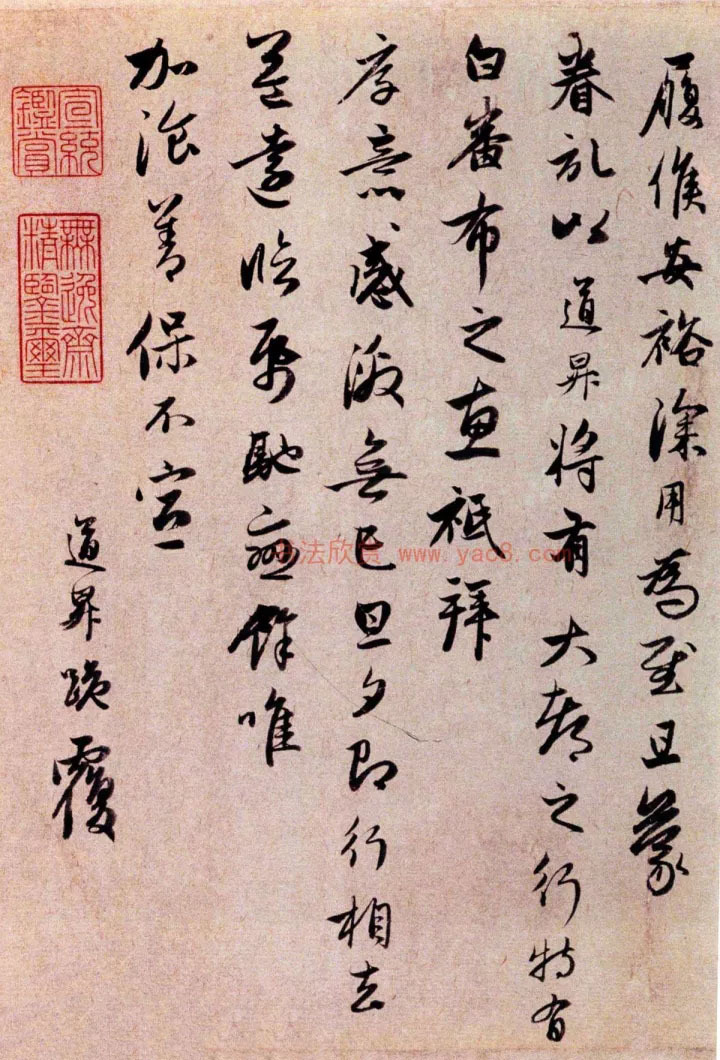 履候安裕深用為慰且蒙
眷以道昇將有大都之行特有
白番布之惠祗拜
厚意感激無已旦夕即行相去
益遠臨帋馳戀餘唯
加飡善保不宣
道昇跪覆
宣統
鑑賞
無逸齋
精鑒璽
书法欣赏 www.yac8.com